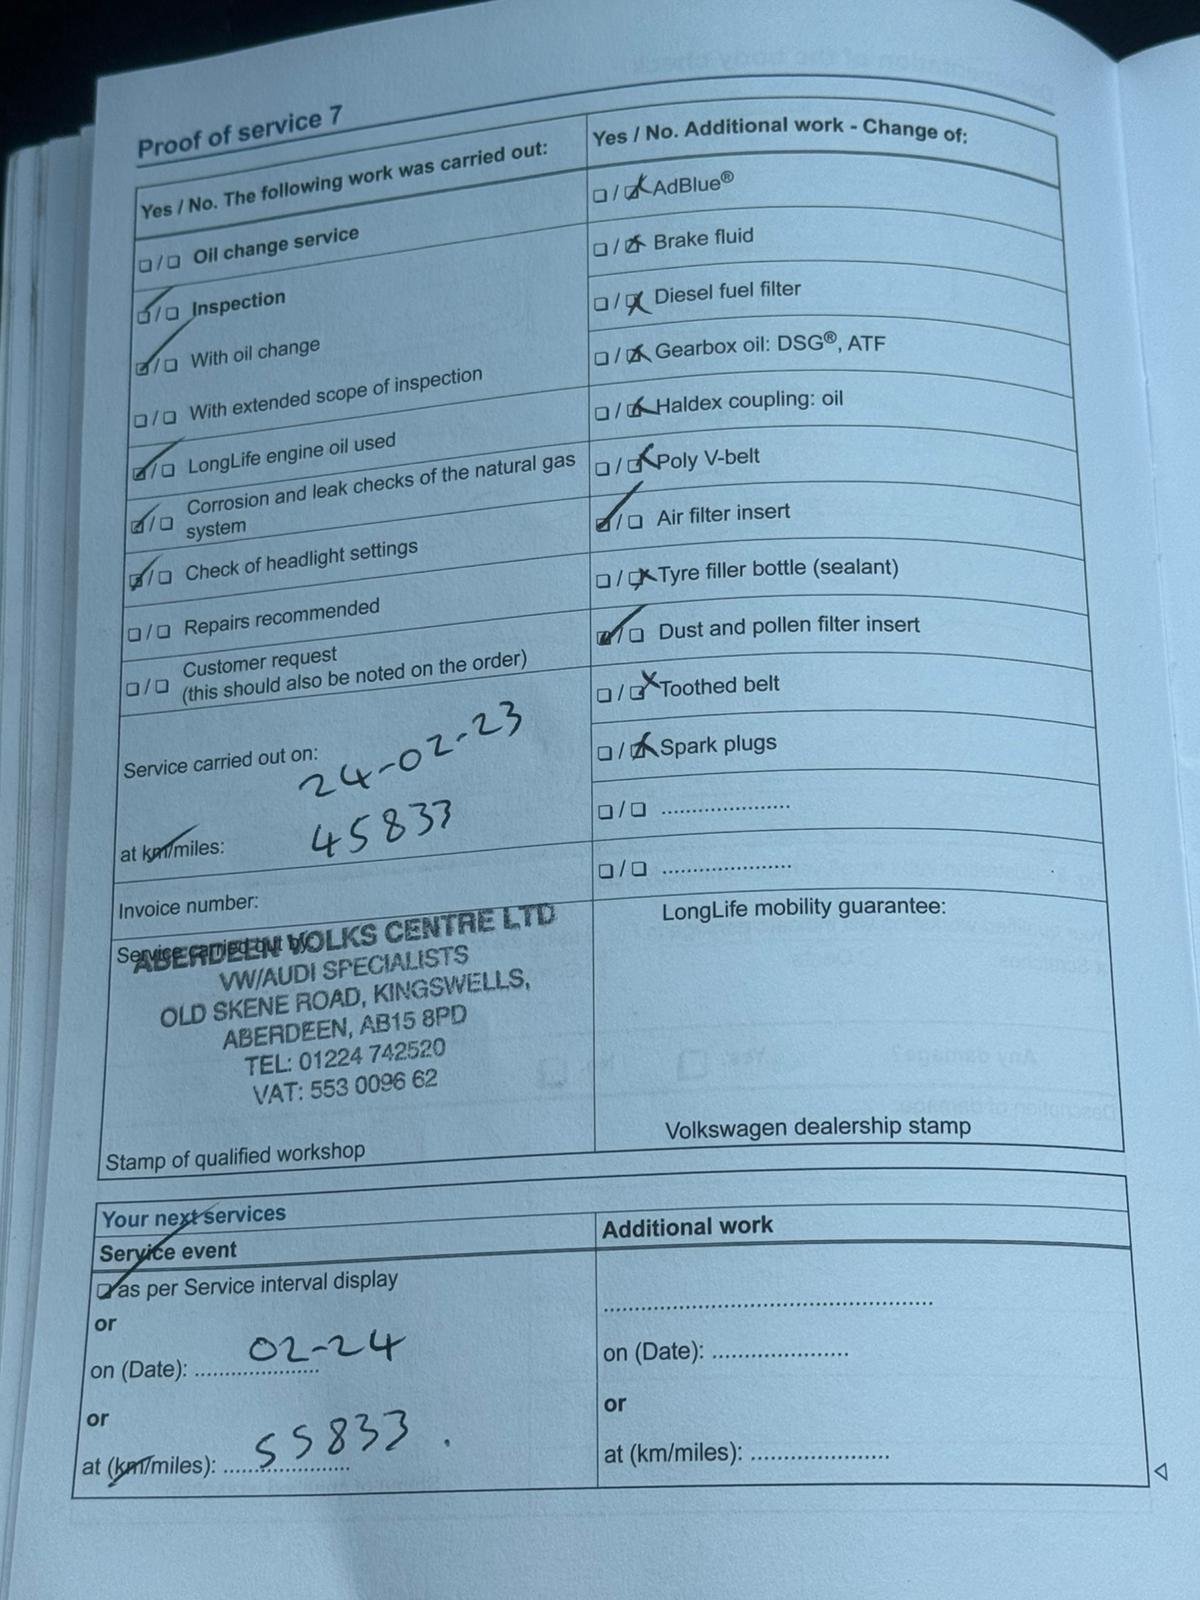 Proof of service 7
Yes / No. The following work was carried out:
☐ / ☐ Oil change service
☑ / ☐ Inspection
☑ / ☐ With oil change
☐ / ☐ With extended scope of inspection
☑ / ☐ LongLife engine oil used
☑ / ☐ Corrosion and leak checks of the natural gas
system
☑ / ☐ Check of headlight settings
☐ / ☐ Repairs recommended
☐ / ☐ Customer request
(this should also be noted on the order)
Service carried out on: 24-02-23
at km/miles: 45833
Invoice number:
Service carried out by:
ABERDEEN VOLKS CENTRE LTD
VW/AUDI SPECIALISTS
OLD SKENE ROAD, KINGSWELLS,
ABERDEEN, AB15 8PD
TEL: 01224 742520
VAT: 553 0096 62
Stamp of qualified workshop
Yes / No. Additional work - Change of:
☐ / ☒ AdBlue®
☐ / ☒ Brake fluid
☐ / ☒ Diesel fuel filter
☐ / ☒ Gearbox oil: DSG®, ATF
☐ / ☒ Haldex coupling: oil
☐ / ☒ Poly V-belt
☑ / ☐ Air filter insert
☐ / ☒ Tyre filler bottle (sealant)
☑ / ☐ Dust and pollen filter insert
☐ / ☒ Toothed belt
☐ / ☒ Spark plugs
☐ / ☐ ......................
☐ / ☐ ......................
LongLife mobility guarantee:
Volkswagen dealership stamp
Your next services
Service event
☑ as per Service interval display
or
on (Date): 02-24
or
at (km/miles): 55833
Additional work
......................................................
on (Date): ......................
or
at (km/miles): ......................